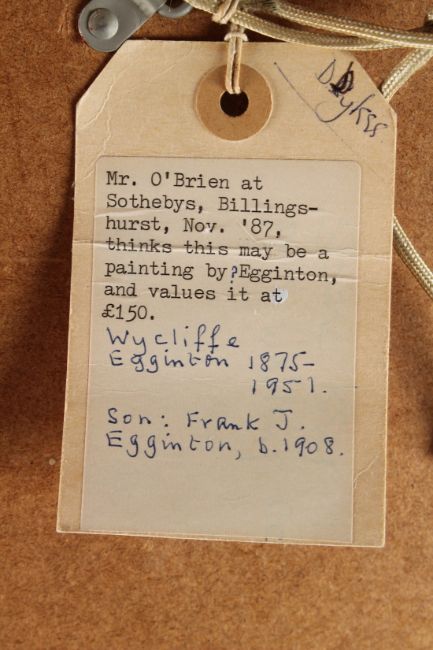 Dykes
Mr. O'Brien at
Sothebys, Billings-
hurst, Nov. '87,
thinks this may be a
painting by ? Egginton,
and values it at
£150.
Wycliffe
Egginton 1875-
1951.
Son: Frank J.
Egginton, b.1908.